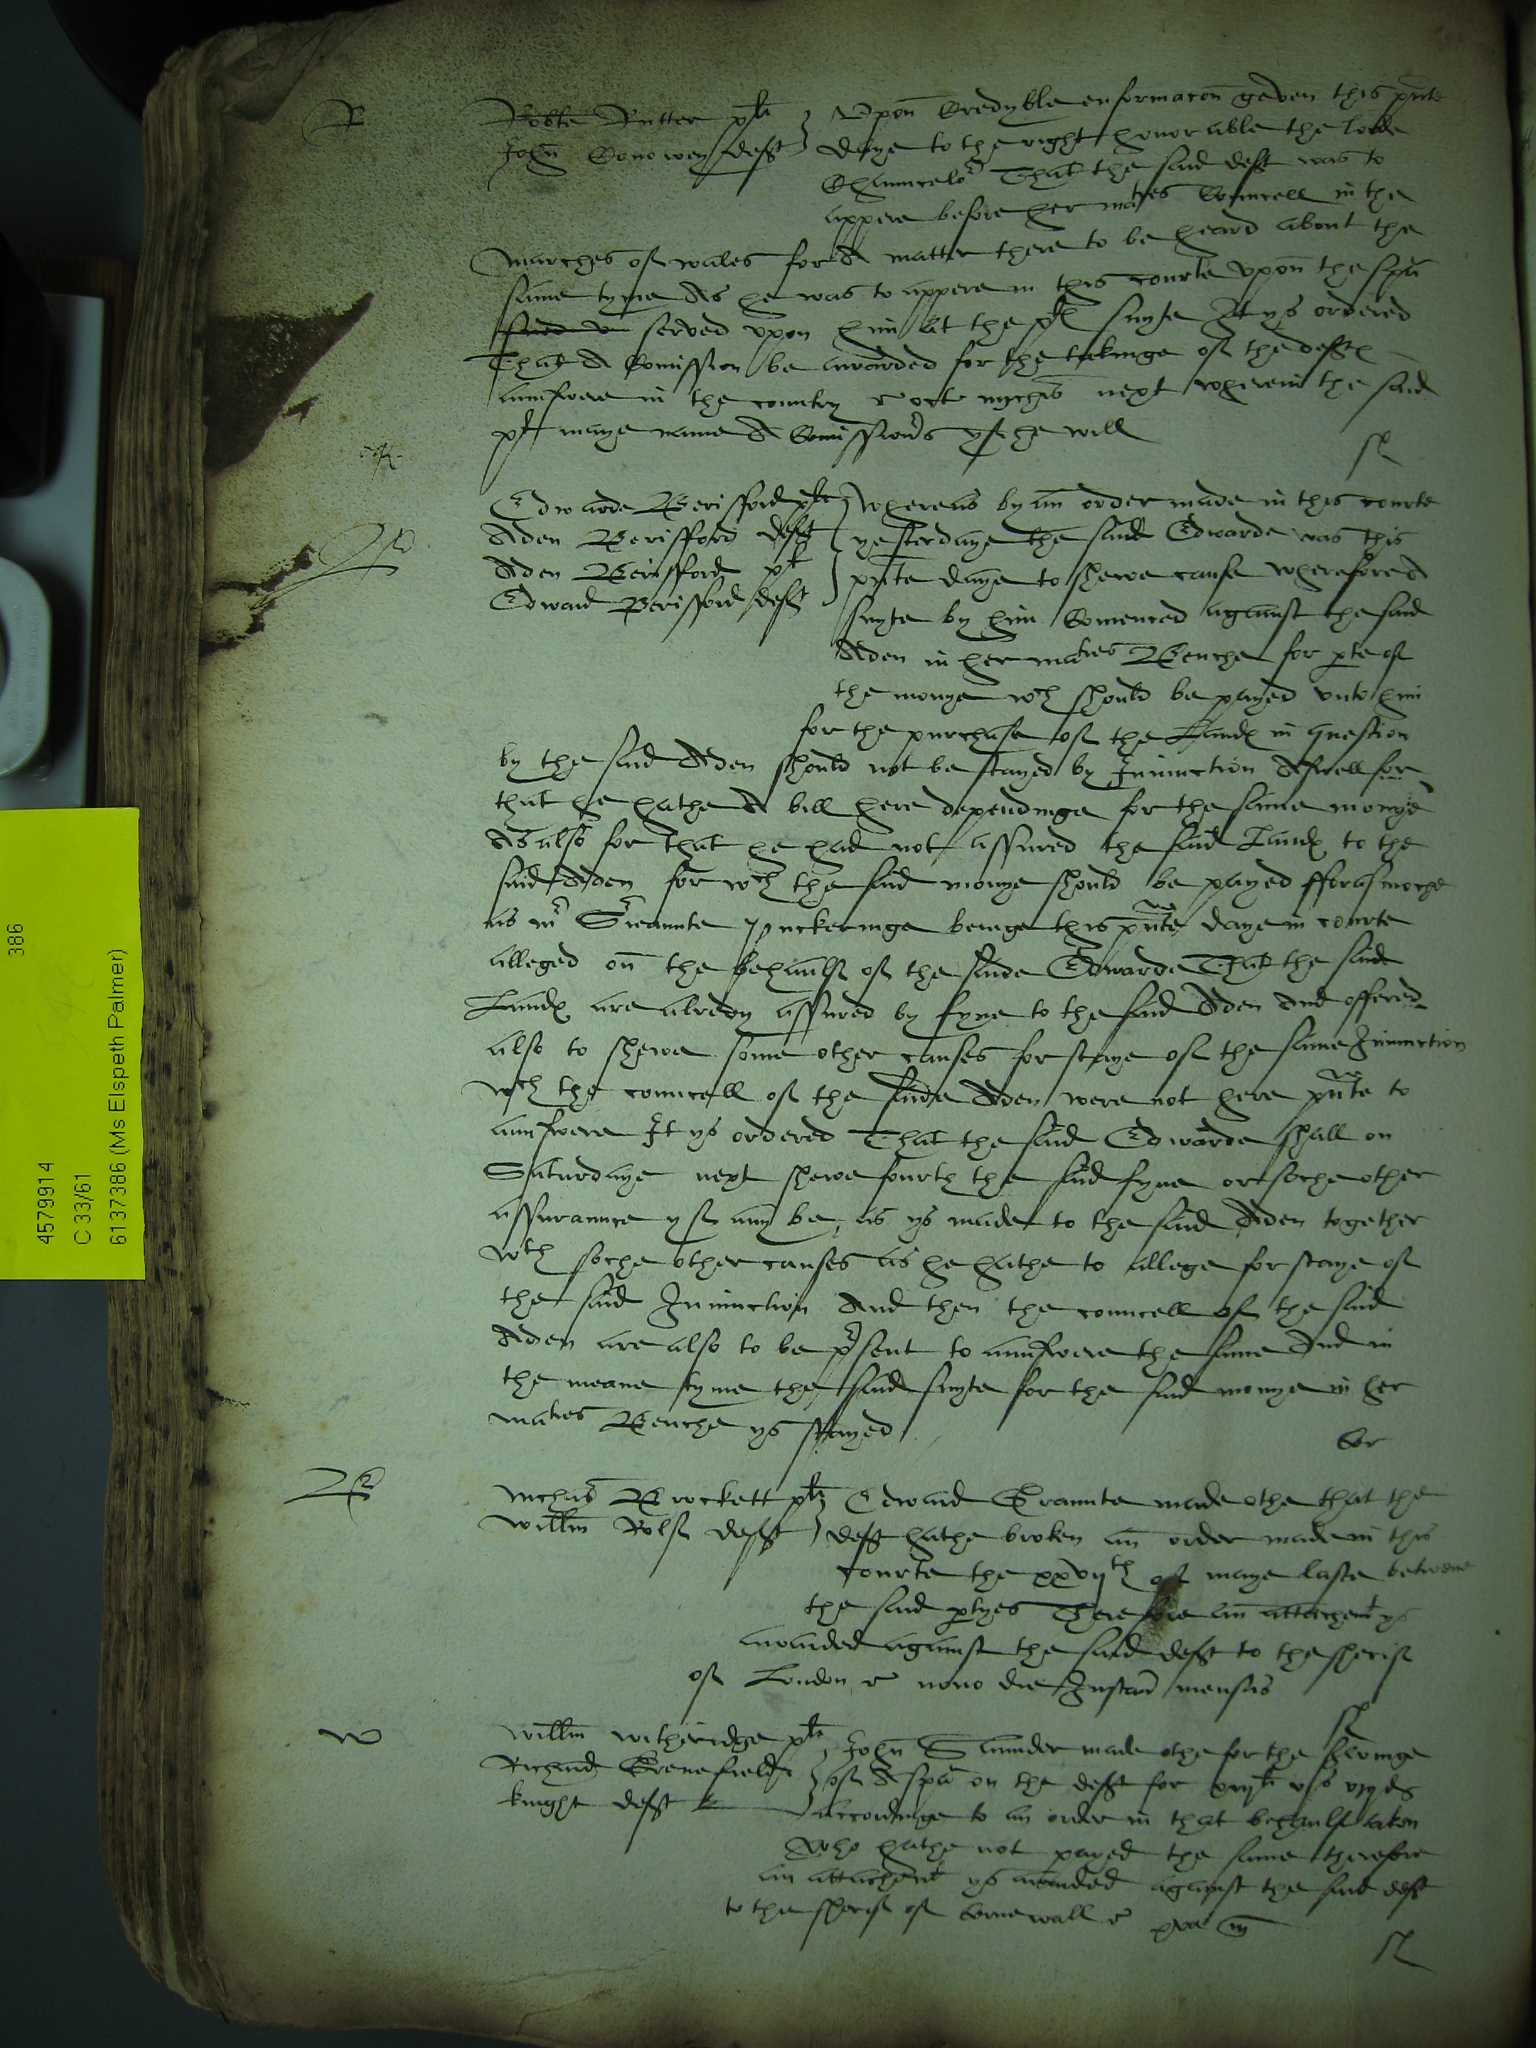 R
Robte Rutter plt } Upon Credyble enformacon geven this pnte
John Conowey deft } daye to the right honorable the lorde
Chauncelor That the said deft was to
appere before her maties Councell in the
marches of wales for A matter there to be heard about the
same tyme As he was to appere in this courte upon the spa
served upon him at the plts suyte It ys ordered
That A Comission be awarded for the takinge of the defts
aunswere in the country r oct mychis next wherein the said
plt maye name A Comissioners yf he will
Edwarde Berisford plt } whereas by an order made in this courte
Aden Berisford deft } yesterdaye the said Edwarde was this
Aden Berisford plt } pnte daye to shewe cause wherefore A
Edward Berisford deft } suyte by him Comenced against the said
Aden in her maties Benche for pte of
the monye wch should be payed unto him
for the purchase of the Lands in question
by the said Aden should not be stayed by Iniunction Aswell for
that he hathe A bill here dependinge for the same monye
As also for that he had not assured the said Lands to the
said Aden for wch the said monye should be payed fforasmoche
as mr Sreaunte Puckeringe beinge this pnte daye in courte
alleged on the behaulf of the saide Edwarde That the saide
Lands are alredy assured by fyne to the said Aden And offered
also to shewe some other causes for staye of the same Iniunction
wch the councell of the saide Aden were not here pnte to
aunswere It ys ordered That the said Edwarde shall on
Saturdaye next shewe fourth the said fyne or soche other
assuraunce yf any be, as ys made to the said Aden together
wth soche other causes as he hathe to allege for staye of
the said Iniunction And then the councell of the said
Aden are also to be present to aunswere the same And in
the meane tyme the said suyte for the said monye in her
maties Benche ys stayed
Nichas Brockett plt } Edward Graunte made othe that the
Willm Rolf deft } deft hathe broken an order made in this
courte the xxvijth of maye laste betwene
the said ptyes Therefore an attachemt ys
awarded against the said deft to the sherif
of London r nono die Instan mensis
W
Willm witheridge plt } John Saunder made othe for the servinge
Richard Grenefield } of A spa on the deft for
knight deft } accordinge to an order in that behaulf taken
Who hathe not payed the same therefore
an attachemt ys awarded against the said deft
to the sherif of Cornewall r xva m
386
4579914
C 33/61
6137386 (Ms Elspeth Palmer)